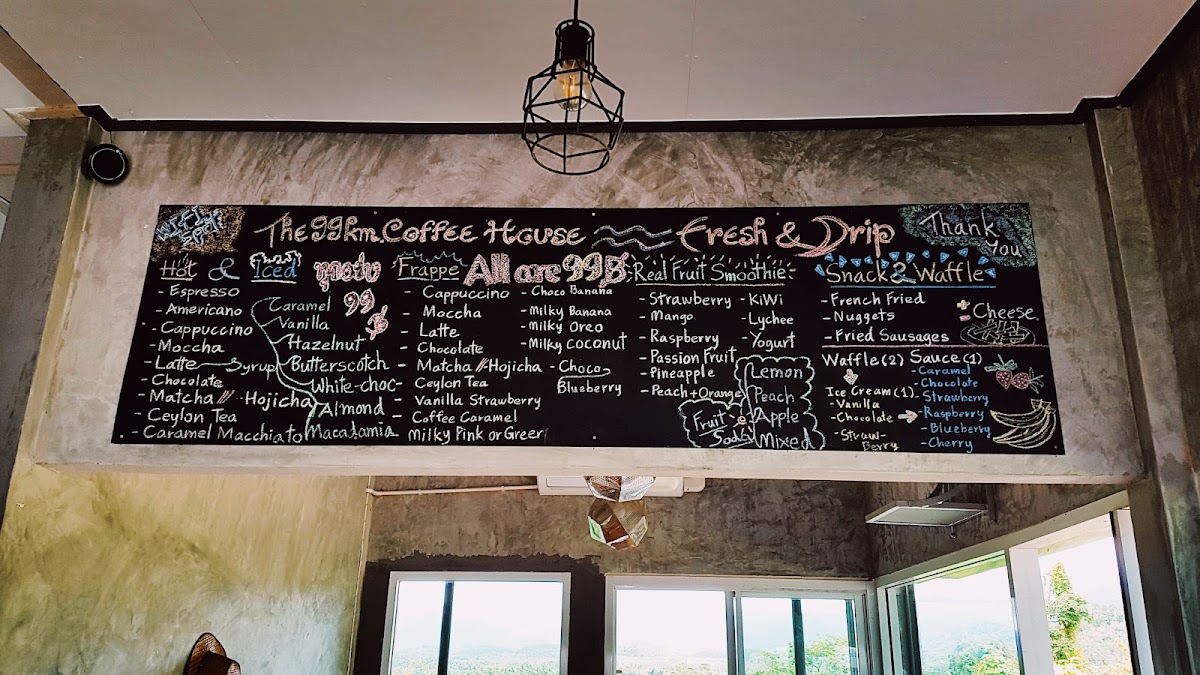 The 99 km. Coffee House
Fresh & Drip
Thank
You
Hot & Iced
- Espresso
- Americano
- Cappuccino
- Moccha
- Latte
- Chocolate
- Matcha // Hojicha
- Ceylon Tea
- Caramel Macchiato
Syrup
Caramel
Vanilla
Hazelnut
Butterscotch
White-choc
Almond
Macadamia
99
฿
Frappe
All are 99 ฿
- Cappuccino
- Moccha
- Latte
- Chocolate
- Matcha // Hojicha
- Ceylon Tea
- Vanilla Strawberry
- Coffee Caramel
Milky Pink or Green
- Choco Banana
- Milky Banana
- Milky Oreo
- Milky coconut
- Choco
Blueberry
Real Fruit Smoothie
- Strawberry
- Mango
- Raspberry
- Passion Fruit
- Pineapple
- Peach + Orange
- KiWi
- Lychee
- Yogurt
Fruit
Soda
Lemon
Peach
Apple
Mixed
Snack & Waffle
- French Fried
- Nuggets
- Fried Sausages
+ Cheese
Waffle (2) Sauce (1)
Ice Cream (1)
- Vanilla
- Chocolate
- Straw-
Berry
- Caramel
- Chocolate
- Strawberry
- Raspberry
- Blueberry
- Cherry